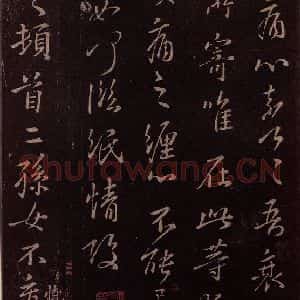 痛心奈何吾衰
所寄唯在此等
痛之纏心不能
臨紙情
頓首二孫女不
Shufawang.CN